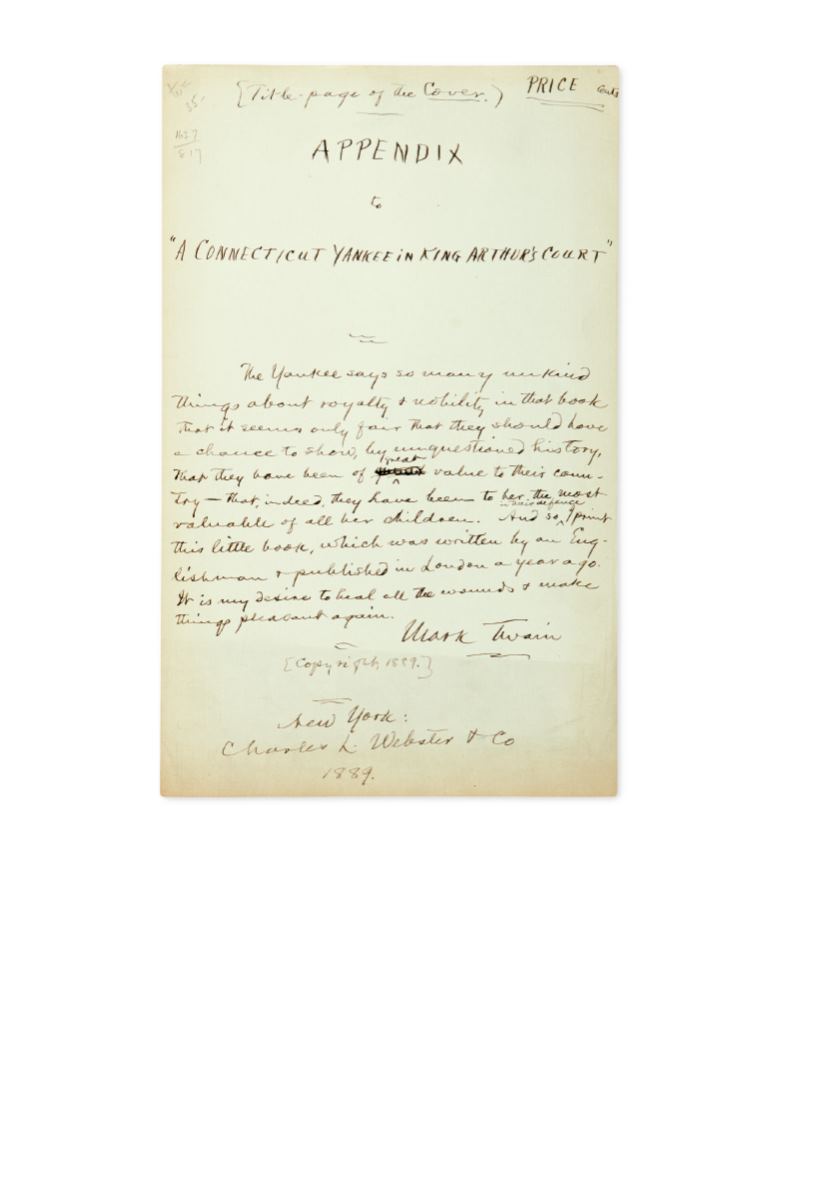 {Title-page of the Cover.)
PRICE cents
35
1637
817
APPENDIX
to
"A CONNECTICUT YANKEE IN KING ARTHUR'S COURT"
The Yankee says so many unkind
things about royalty & nobility in that book
that it seems only fair that they should have
a chance to show, by unquestioned history,
great
that they have been of value to their coun-
try — that, indeed, they have been to her the most
in their defence
valuable of all her children. And so, I print
this little book, which was written by an Eng-
lishman & published in London a year ago.
It is my desire to heal all the wounds & make
things pleasant again.
Mark Twain
[Copyright, 1889.]
New York:
Charles L. Webster & Co
1889.